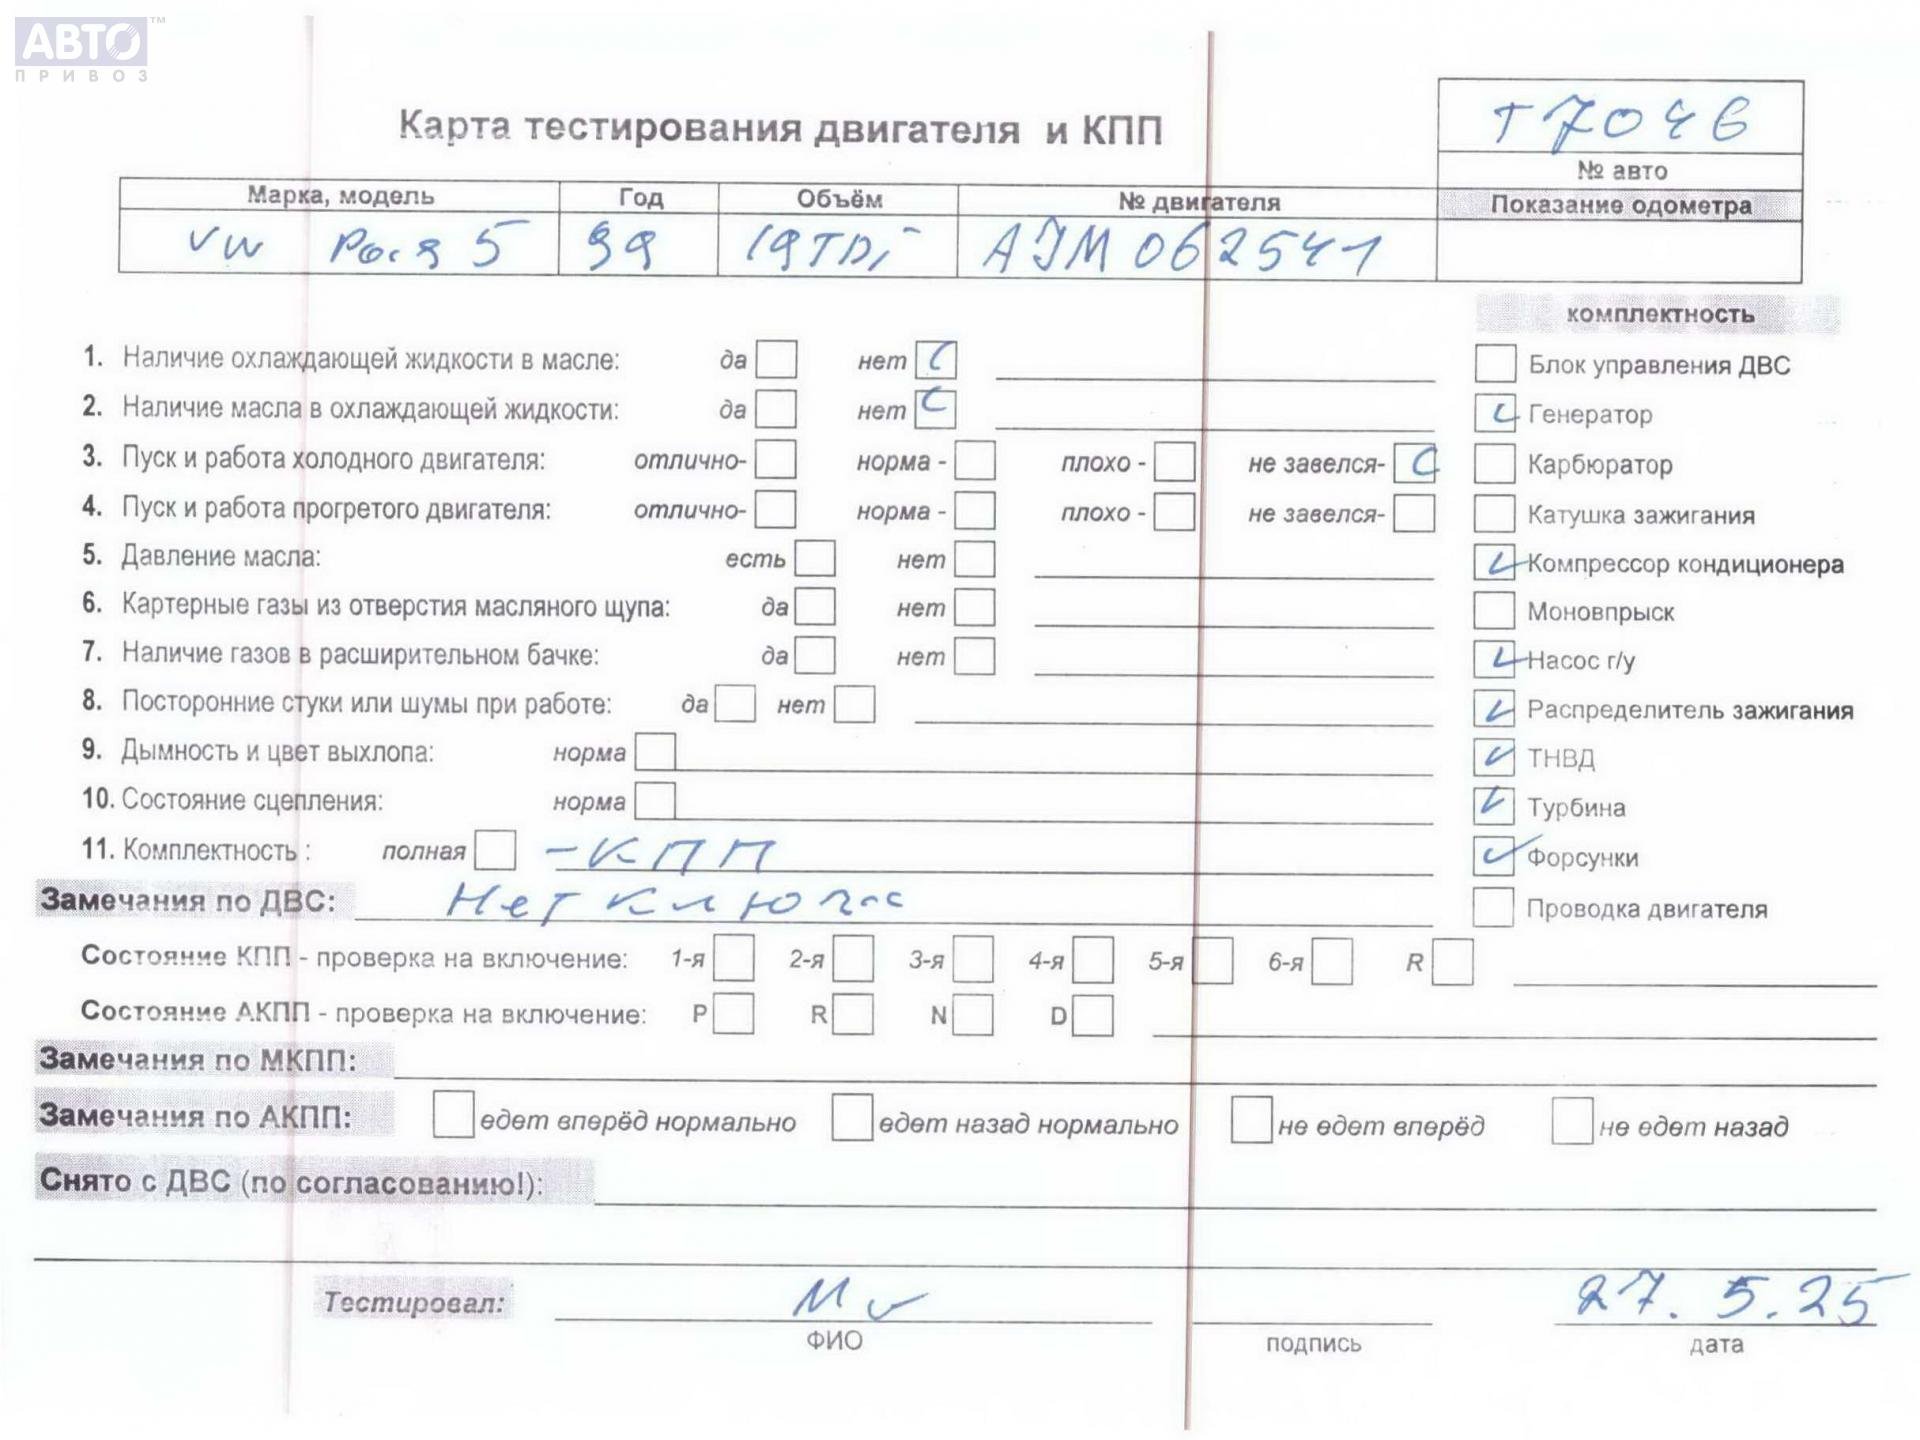 АВТО™
ПРИВОЗ
Т7046
Карта тестирования двигателя и КПП
№ авто
Марка, модель Год Объём № двигателя Показание одометра
VW 5 99 19TDi AJM 062541
комплектность
1. Наличие охлаждающей жидкости в масле: да нет
Блок управления ДВС
2. Наличие масла в охлаждающей жидкости: да нет
Генератор
3. Пуск и работа холодного двигателя: отлично- норма - плохо - не завелся-
Карбюратор
4. Пуск и работа прогретого двигателя: отлично- норма - плохо - не завелся-
Катушка зажигания
5. Давление масла: есть нет
Компрессор кондиционера
6. Картерные газы из отверстия масляного щупа: да нет
Моновпрыск
7. Наличие газов в расширительном бачке: да нет
Насос г/у
8. Посторонние стуки или шумы при работе: да нет
Распределитель зажигания
9. Дымность и цвет выхлопа: норма
ТНВД
10. Состояние сцепления: норма
Турбина
11. Комплектность : полная - КПП
Форсунки
Замечания по ДВС: Нет ключа
Проводка двигателя
Состояние КПП - проверка на включение: 1-я 2-я 3-я 4-я 5-я 6-я R
Состояние АКПП - проверка на включение: P R N D
Замечания по МКПП:
Замечания по АКПП: едет вперёд нормально едет назад нормально не едет вперёд не едет назад
Снято с ДВС (по согласованию!):
Тестировал: 27.5.25
ФИО подпись дата